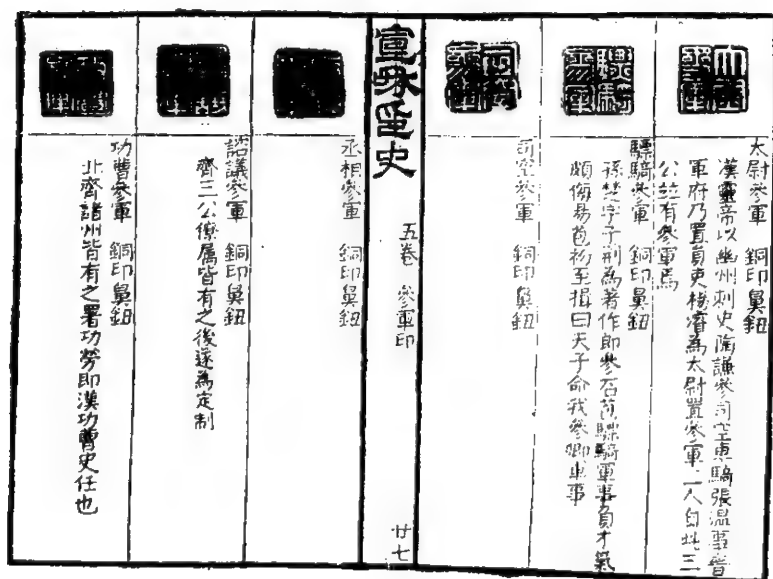 太尉參軍　銅印鼻鈕
漢靈帝以幽州刺史陶謙參司空車騎張溫軍事晉
軍府乃置員吏楊濟為太尉置參軍二人自此三
公並有參軍焉
驃騎參軍　銅印鼻鈕
孫楚字子荊為著作郎參石苞驃騎軍事負才氣
頗侮易苞初至揖曰天子命我參卿軍事
司空參軍　銅印鼻鈕
宣和印史
五卷　參軍印
廿七
丞相參軍　銅印鼻鈕
諮議參軍　銅印鼻鈕
齊三公僚屬皆有之後遂為定制
功曹參軍　銅印鼻鈕
北齊諸州皆有之署功勞即漢功曹史任也